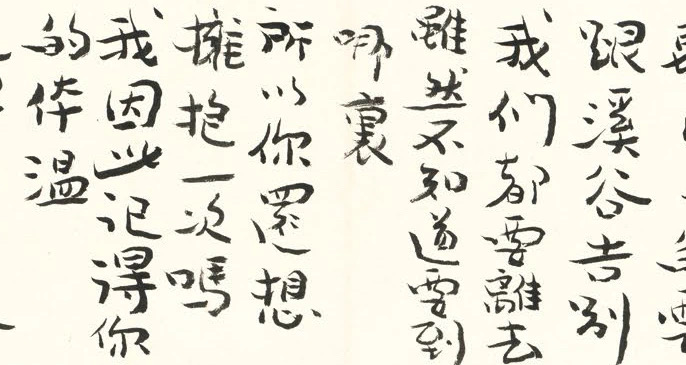 跟溪谷告別
我们都要離去
雖然不知道要到
哪裏
所以你還想
擁抱一次嗎
我因此记得你
的体温